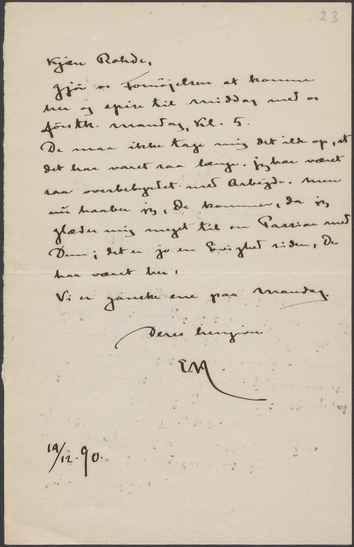 23
Kjære Rohde,
Gjör os Fornöjelsen at komme
her og spise til Middag med os
förstk. Mandag, Kl. 5.
De maa ikke tage mig det ilde op, at
det har varet saa længe. Jeg har været
saa overbebyrdet med Arbejde. Men
nu haaber jeg, De kommer, da jeg
glæder mig meget til en Passiar med
Dem; det er jo en Evighed siden, De
har været her.
Vi er ganske ene paa Mandag.
Deres hengivne
14/12.90.